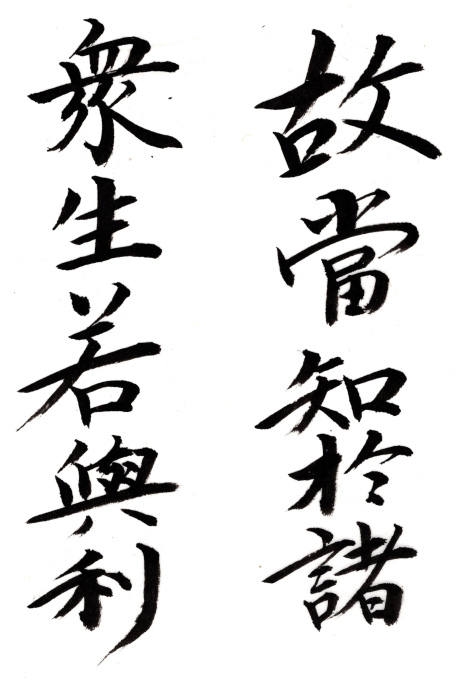 故當知於諸
衆生若與利